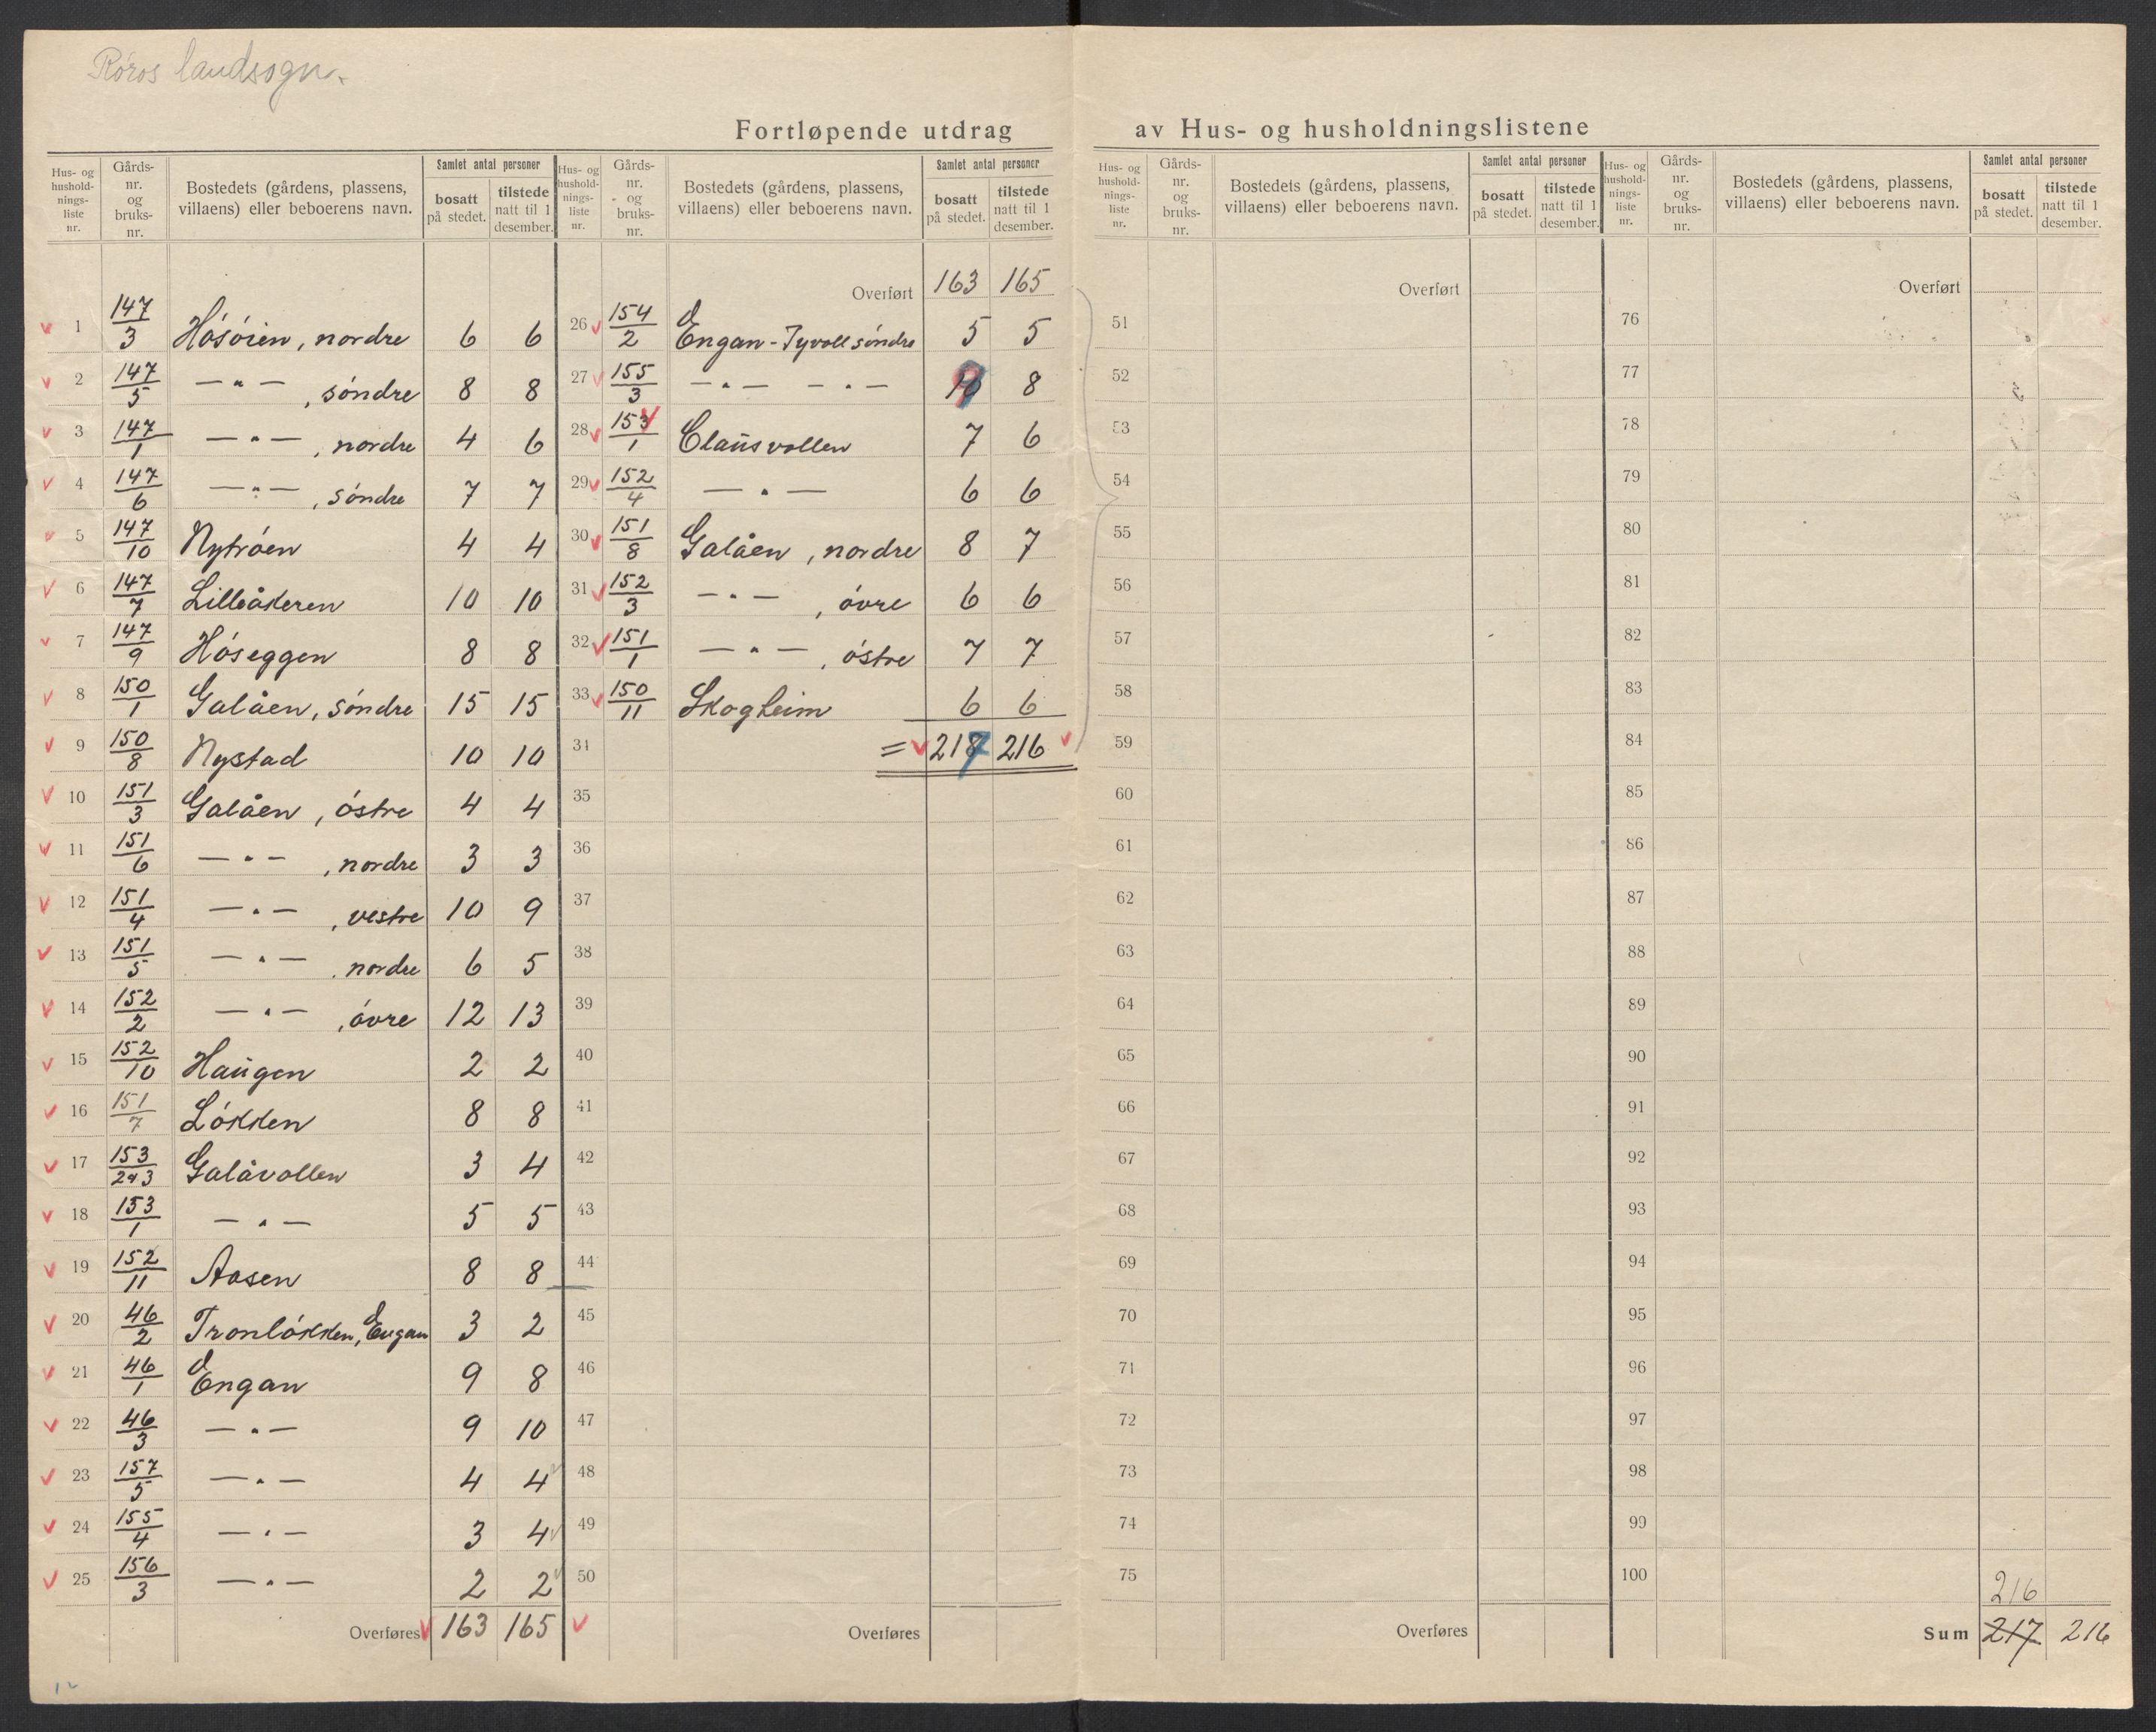 Røros landsogn.
Fortløpende utdrag av Hus- og husholdningslistene
Hus- og husholdningsliste nr. | Gårds-nr. og bruks-nr. | Bostedets (gårdens, plassens, villaens) eller beboerens navn. | Samlet antal personer | bosatt på stedet. | tilstede natt til 1 desember.
1 147/3 Hósóien, nordre 6 6
2 147/5 —"— , søndre 8 8
3 147/1 —"— , nordre 4 6
4 147/6 —"— , søndre 7 7
5 147/10 Nytróen 4 4
6 147/7 Lilleåkeren 10 10
7 147/9 Hóseggen 8 8
8 150/1 Galåen, søndre 15 15
9 150/8 Nystad 10 10
10 151/3 Galåen, óstre 4 4
11 151/6 —"— , nordre 3 3
12 151/4 —"— , vestre 10 9
13 151/5 —"— , nordre 6 5
14 152/2 —"— , óvre 12 13
15 152/10 Haugen 2 2
16 151/7 Lókken 8 8
17 153/2 & 3 Galåvollen 3 4
18 153/1 —"— 5 5
19 152/11 Aasen 8 8
20 46/2 Tronlókken, Engan 3 2
21 46/1 Engan 9 8
22 46/3 —"— 9 10
23 157/5 —"— 4 4
24 155/4 —"— 3 4
25 156/3 —"— 2 2
Overføres 163 165
Hus- og husholdningsliste nr. | Gårds-nr. og bruks-nr. | Bostedets (gårdens, plassens, villaens) eller beboerens navn. | Samlet antal personer | bosatt på stedet. | tilstede natt til 1 desember.
Overført 163 165
26 154/2 Engan-Tyvoll søndre 5 5
27 155/3 —"— —"— 9 8
28 153/1 Clausvollen 7 6
29 152/4 —"— 6 6
30 151/8 Galåen, nordre 8 7
31 152/3 —"— , óvre 6 6
32 151/1 —"— , óstre 7 7
33 150/11 Skogheim 6 6
34 = 217 216
35
36
37
38
39
40
41
42
43
44
45
46
47
48
49
50
Overføres
Hus- og husholdningsliste nr. | Gårds-nr. og bruks-nr. | Bostedets (gårdens, plassens, villaens) eller beboerens navn. | Samlet antal personer | bosatt på stedet. | tilstede natt til 1 desember.
Overført
51
52
53
54
55
56
57
58
59
60
61
62
63
64
65
66
67
68
69
70
71
72
73
74
75
Overføres
Hus- og husholdningsliste nr. | Gårds-nr. og bruks-nr. | Bostedets (gårdens, plassens, villaens) eller beboerens navn. | Samlet antal personer | bosatt på stedet. | tilstede natt til 1 desember.
Overført
76
77
78
79
80
81
82
83
84
85
86
87
88
89
90
91
92
93
94
95
96
97
98
99
100
216
Sum 217 216